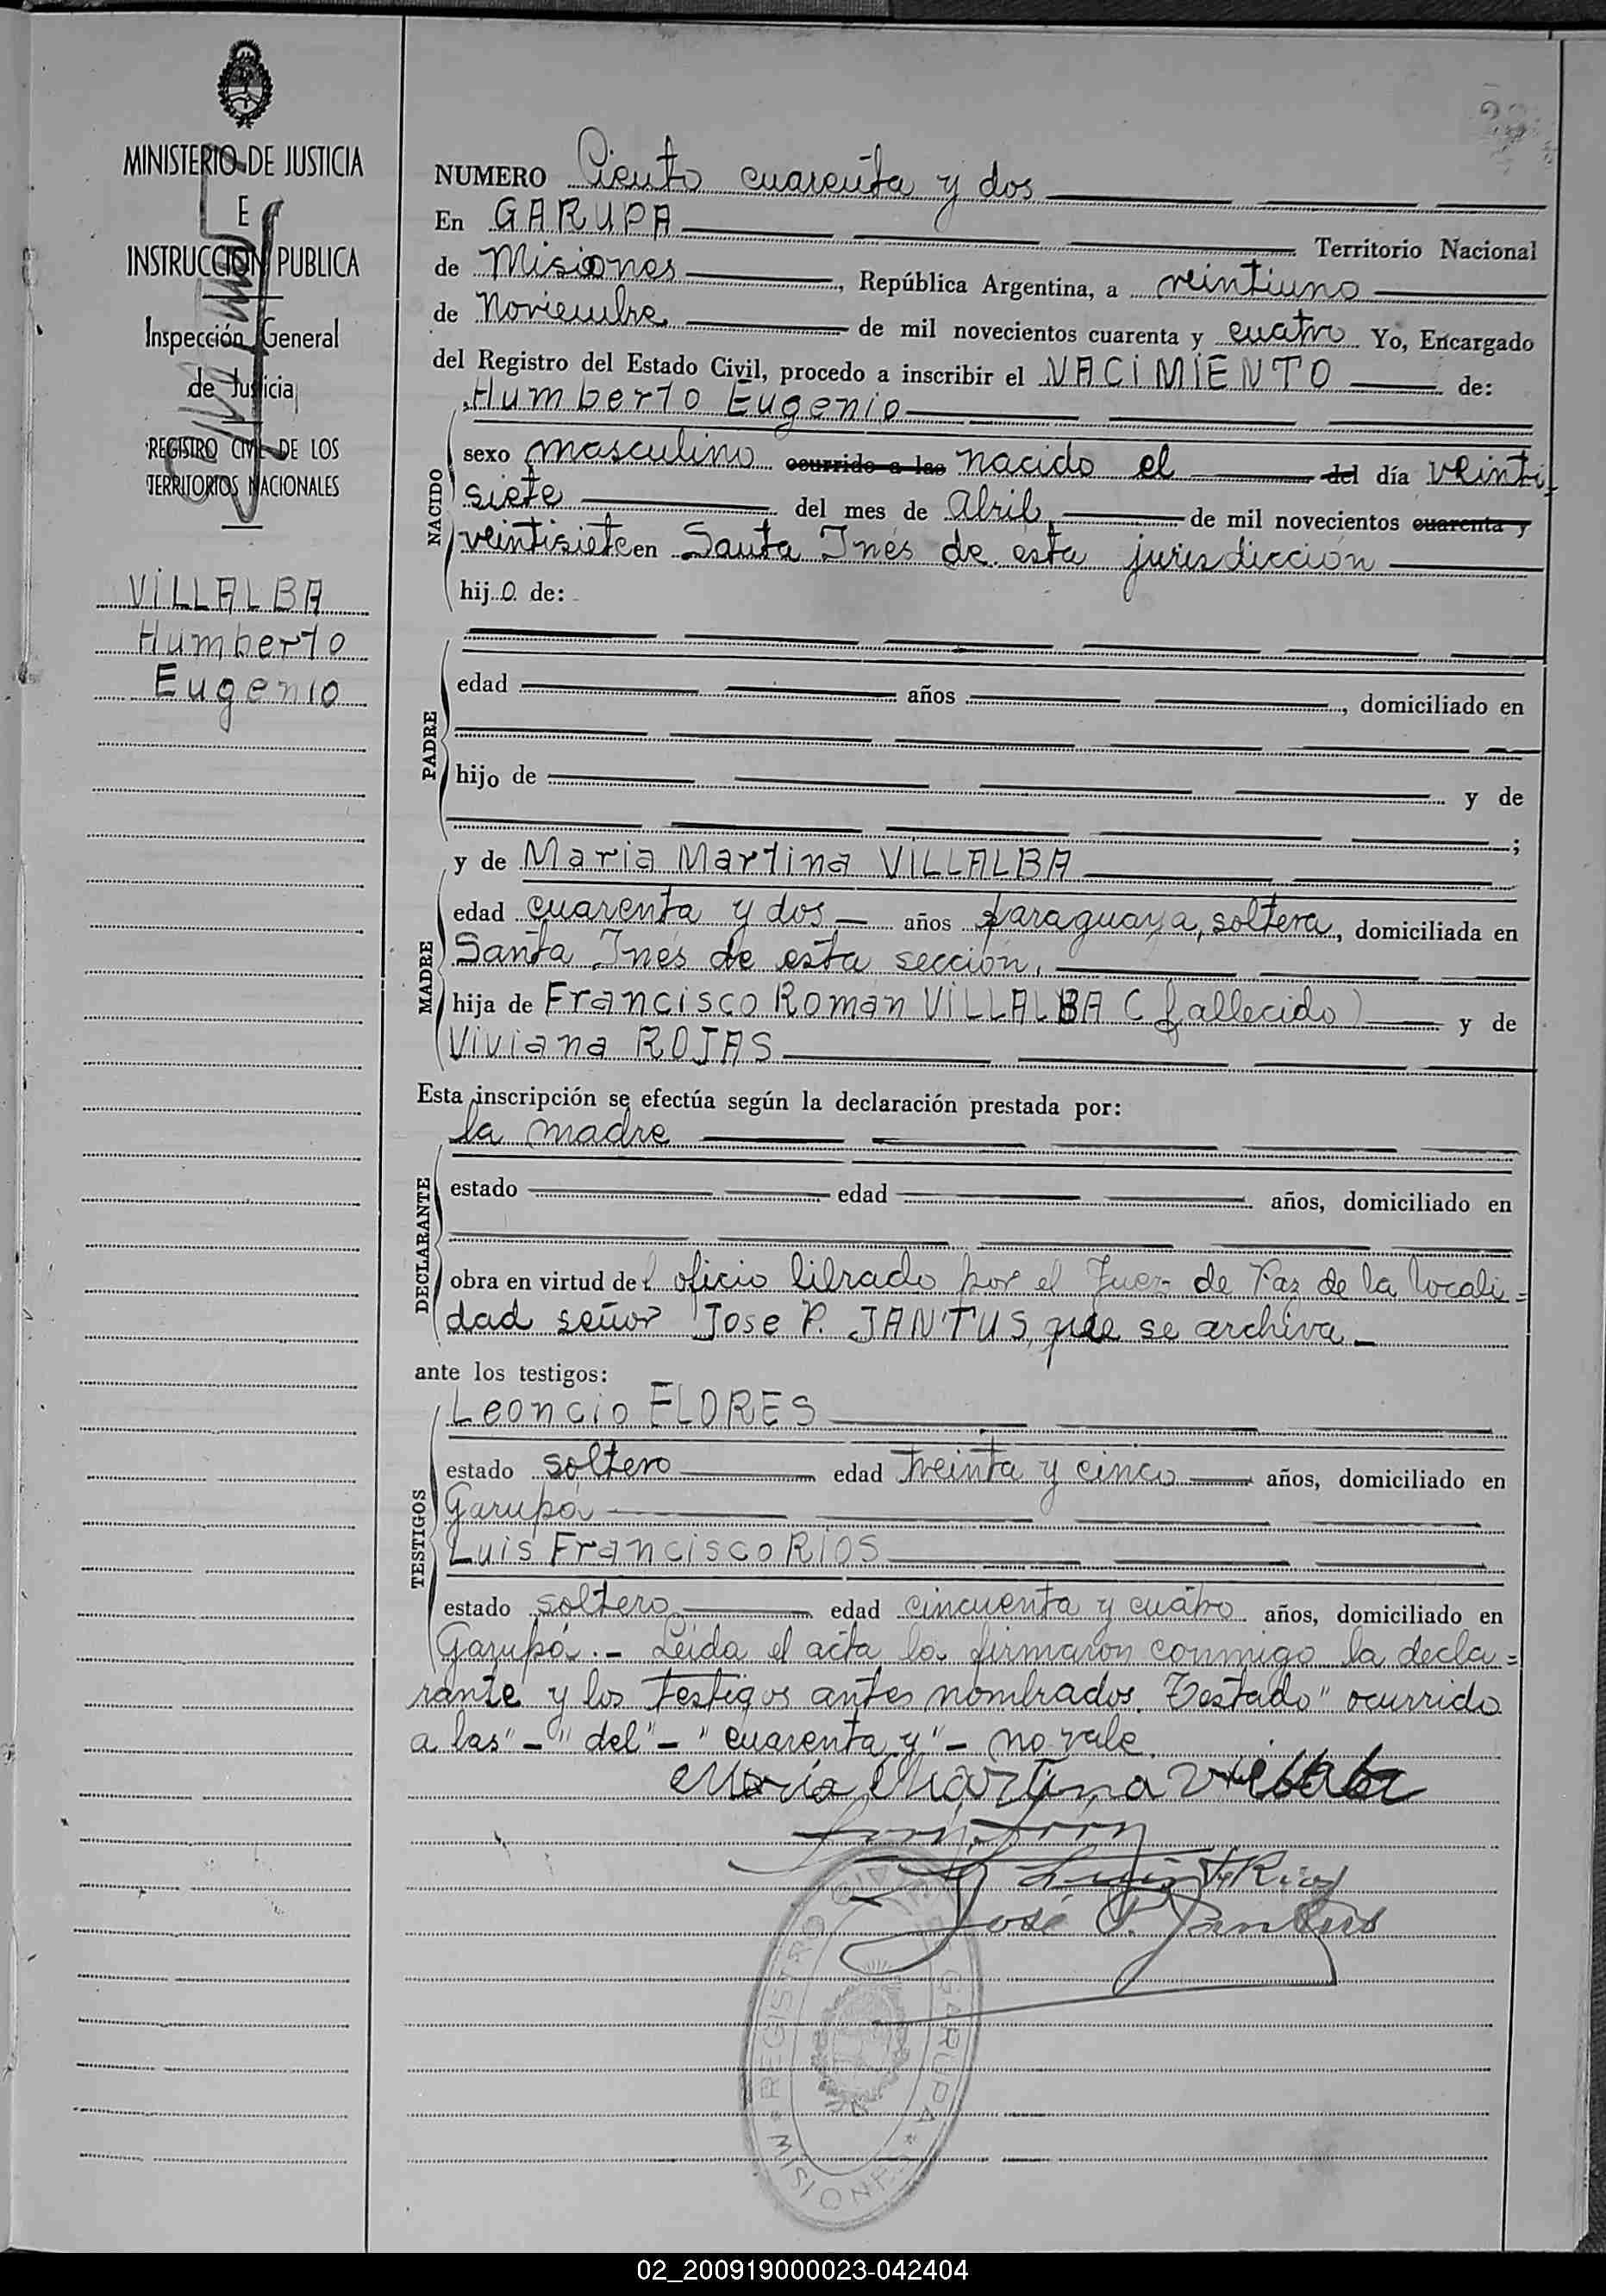 MINISTERIO DE JUSTICIA
E
INSTRUCCION PUBLICA
Inspección General
de Justicia
REGISTRO CIVIL DE LOS
TERRITORIOS NACIONALES
VILLALBA
Humberto
Eugenio
NUMERO Ciento cuarenta y dos
En GARUPA Territorio Nacional
de Misiones, República Argentina, a veintiuno
de Noviembre de mil novecientos cuarenta y cuatro Yo, Encargado
del Registro del Estado Civil, procedo a inscribir el NACIMIENTO de:
Humberto Eugenio
NACIDO
sexo masculino ocurrido a las nacido el del día veinti
siete del mes de Abril de mil novecientos cuarenta y
veintisiete en Santa Inés de esta jurisdicción
hijo de:
PADRE
edad años, domiciliado en
hijo de y de
;
MADRE
y de Maria Martina VILLALBA
edad cuarenta y dos años paraguaya, soltera, domiciliada en
Santa Inés de esta sección.
hija de Francisco Roman VILLALBA (fallecido) y de
Viviana ROJAS
Esta inscripción se efectúa según la declaración prestada por:
DECLARANTE
la madre
estado edad años, domiciliado en
obra en virtud del oficio librado por el Juez de Paz de la locali=
dad señor Jose P. JANTUS, que se archiva
ante los testigos:
TESTIGOS
Leoncio FLORES
estado soltero edad treinta y cinco años, domiciliado en
Garupá
Luis Francisco RIOS
estado soltero edad cincuenta y cuatro años, domiciliado en
Garupá.- Leida el acta la firmaron conmigo la decla=
rante y los testigos antes nombrados. Testado "ocurrido
a las"-"del"-"cuarenta y"- no vale.
Maria Martina Villalba
Luis F. Rios
José P. Jantus
REGISTRO CIVIL GARUPA * MISIONES *
02_200919000023-042404